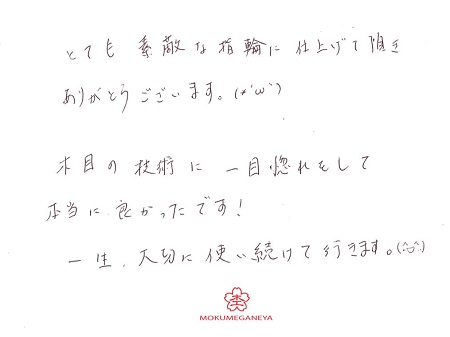 とても 素敵な指輪に 仕上げて頂き
ありがとうございます。(*'ω'*)
木目の技術に 一目惚れをして
本当に良かったです！
一生、大切に使い続けて行きます。(^^)
MOKUMEGANEYA